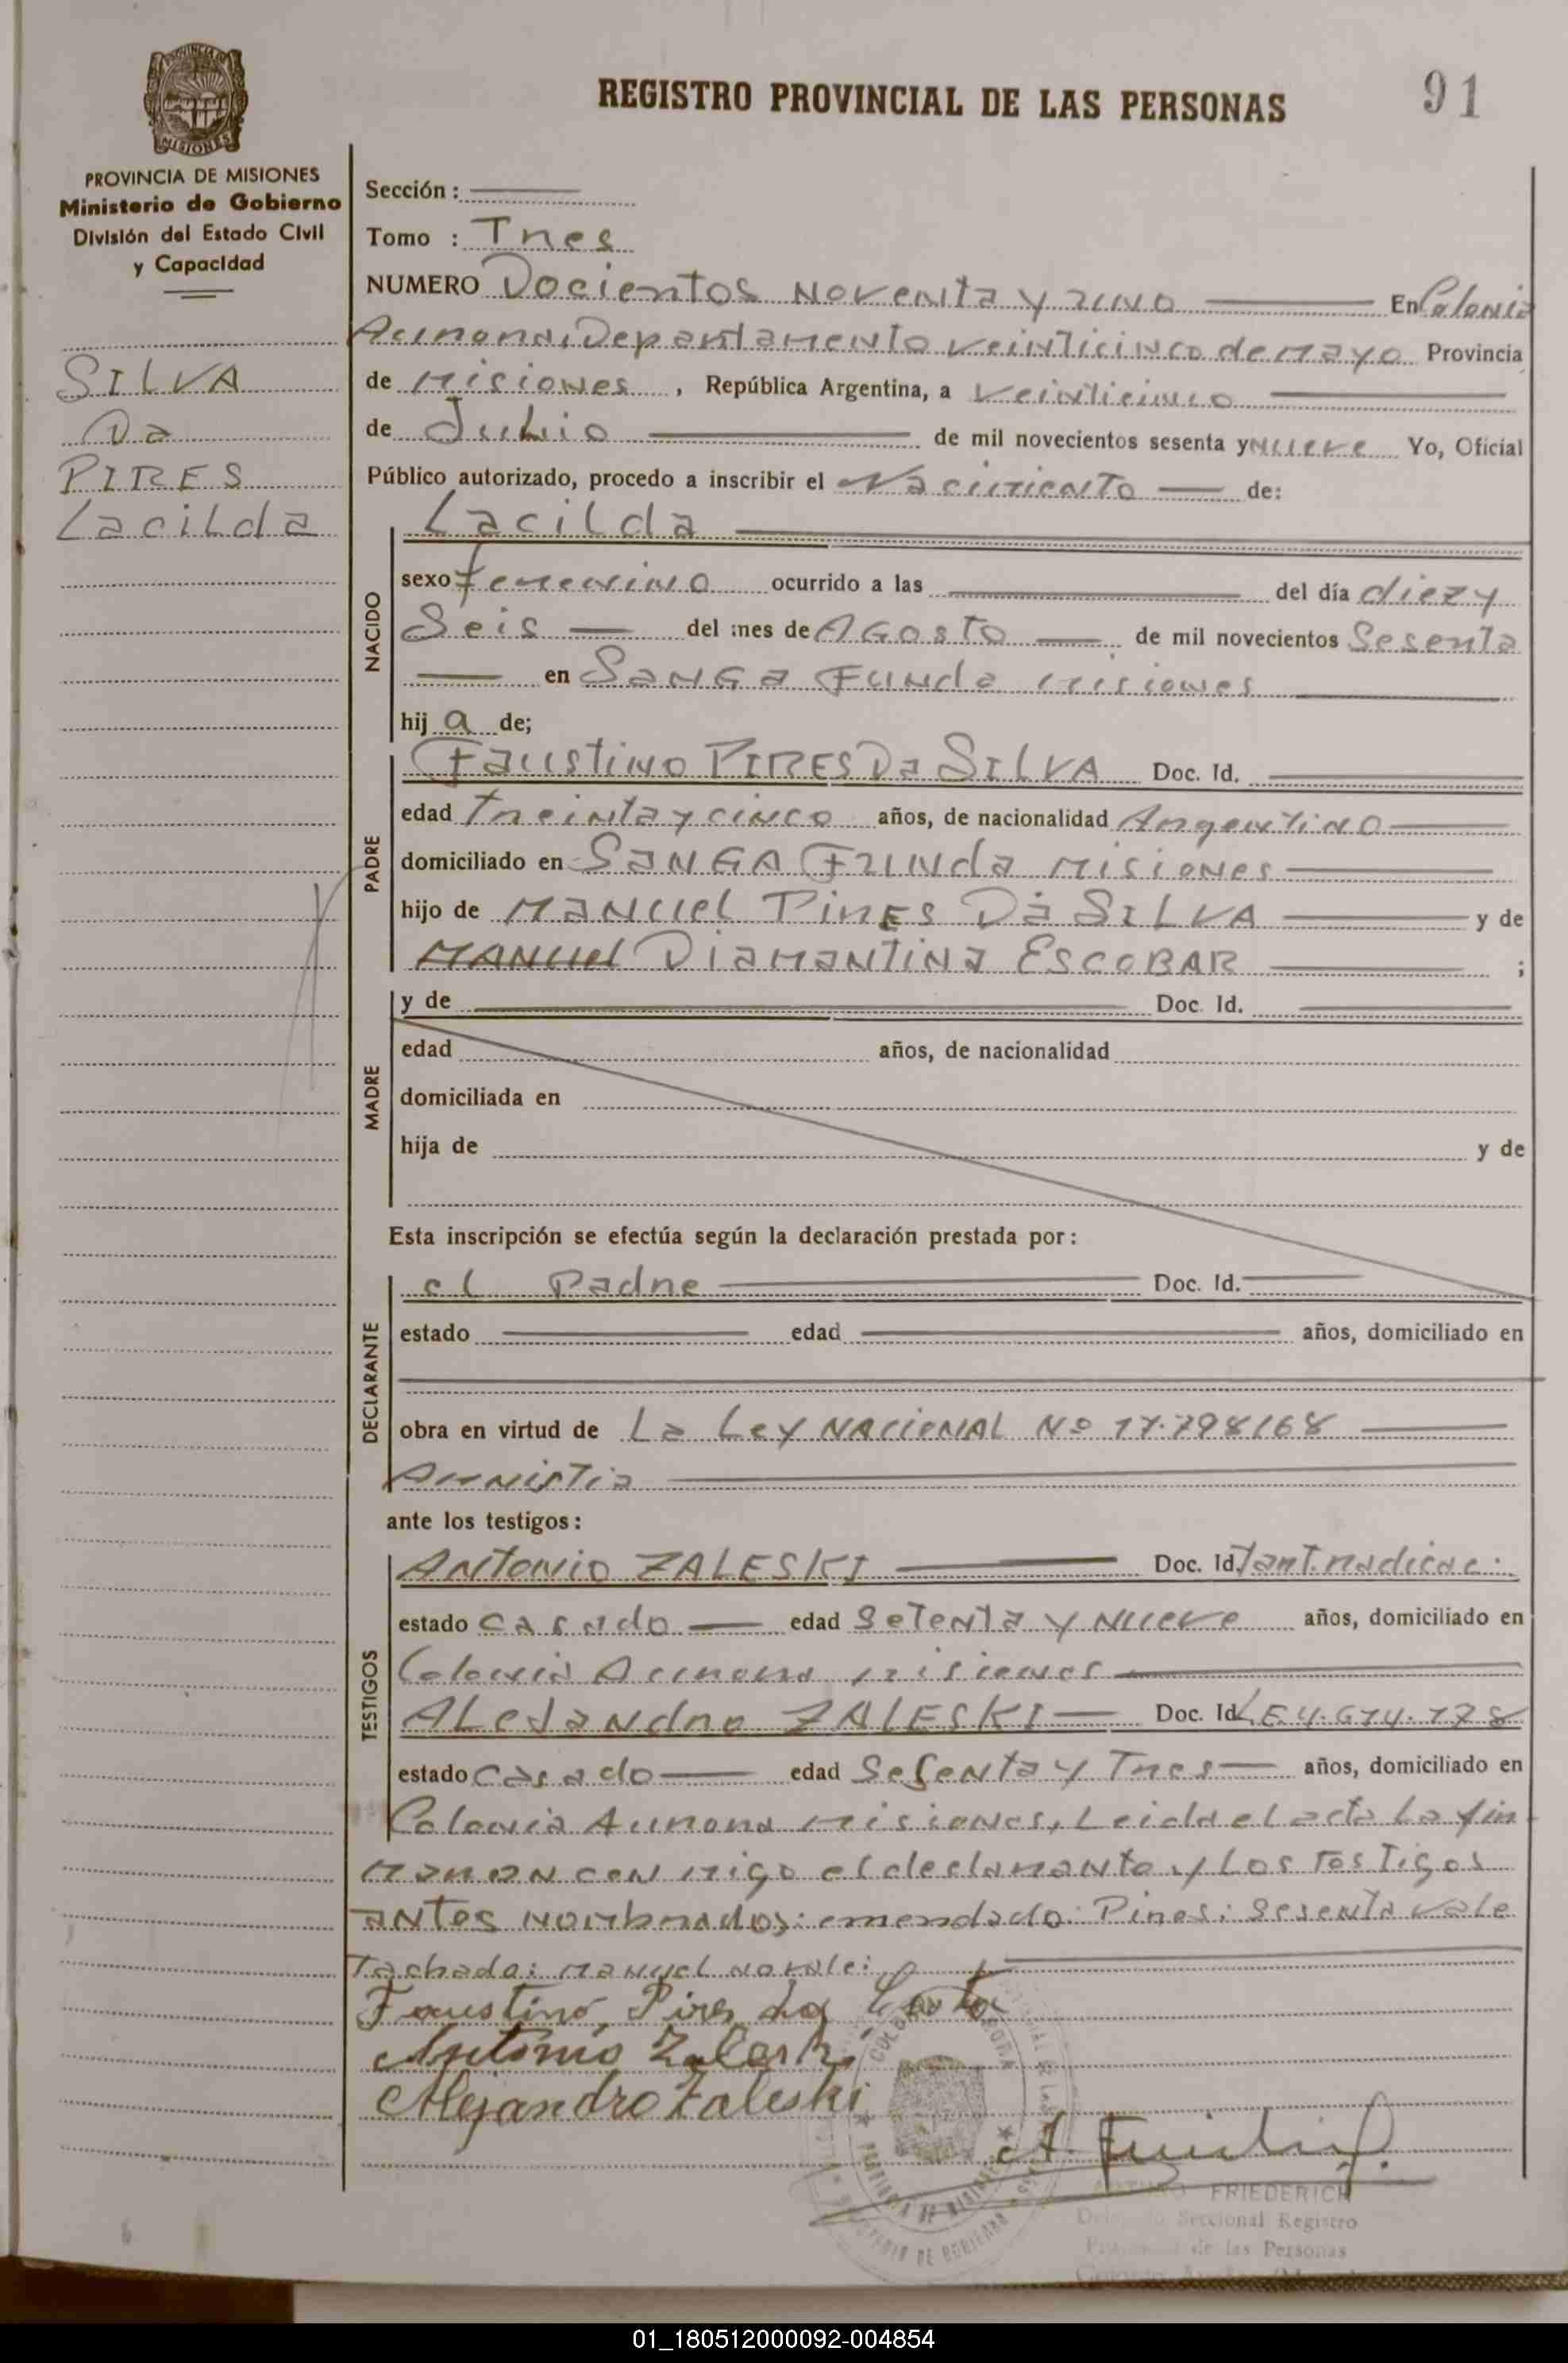 REGISTRO PROVINCIAL DE LAS PERSONAS
91
MISIONES
PROVINCIA DE MISIONES
Ministerio de Gobierno
División del Estado Civil
y Capacidad
SILVA
Da
PIRES
Lacilda
Sección :
Tomo : Tres
NUMERO Docientos Noventa y uno En Colonia
Aurora, Departamento Veinticinco de Mayo Provincia
de Misiones , República Argentina, a Veinticinco
de Julio de mil novecientos sesenta y Nueve Yo, Oficial
Público autorizado, procedo a inscribir el Nacimiento de:
NACIDO
Lacilda
sexo femenino ocurrido a las del día diez y
Seis del mes de AGosto de mil novecientos Sesenta
en SANGA Funda Misiones
hij a de;
PADRE
Faustino PIRES Da SILVA Doc. Id.
edad treinta y cinco años, de nacionalidad Argentino
domiciliado en SANGA Funda Misiones
hijo de MANuel Pires Da SILVA y de
MANuel DiaMANTINA ESCOBAR ;
MADRE
y de Doc. Id.
edad años, de nacionalidad
domiciliada en
hija de y de
Esta inscripción se efectúa según la declaración prestada por:
DECLARANTE
el Padre Doc. Id.
estado edad años, domiciliado en
obra en virtud de La Ley NACIONAL Nº 17.798/68
Amnistia
ante los testigos:
TESTIGOS
ANTonio ZALESKI Doc. Id.
estado Casado edad Setenta y Nueve años, domiciliado en
Colonia Aurora Misiones
ALeJandro ZALESKI Doc. Id. L.E 4.674.178
estado Casado edad Sesenta y Tres años, domiciliado en
Colonia Aurora Misiones, Leida el acta La fir-
maron con migo el declarante y Los Testigos
antes nombrados: emendado: Pires: Sesenta vale
Tachado: Manuel no vale:
Faustino Pires da Costa
Antonio Zaleski
Alejandro Zaleski
FRIEDERICH
Seccional Registro
de las Personas
01_180512000092-004854